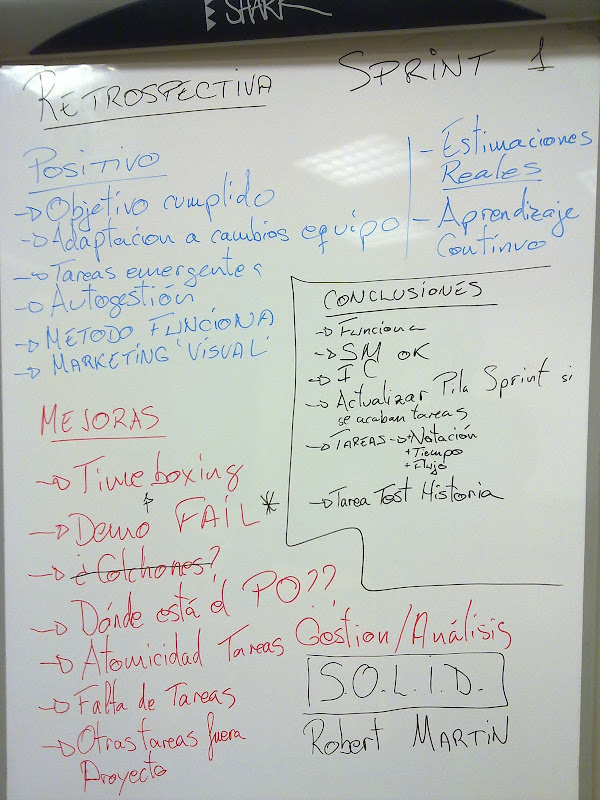 SHARK
RETROSPECTIVA SPRINT 1
POSITIVO
→ Objetivo cumplido
→ Adaptacion a cambios equipo
→ Tareas emergentes
→ Autogestión
→ METODO FUNCIONA
→ MARKETING 'VISUAL'
- Estimaciones
Reales
- Aprendizaje
Continuo
CONCLUSIONES
→ Funciona
→ SM OK
→ I C
→ Actualizar Pila Sprint si
se acaban tareas
→ TAREAS → Notación
+ Tiempo
+ Flujo
→ Tarea Test Historia
MEJORAS
→ Time boxing
→ Demo * FAIL *
→ ¿Colchones?
→ Dónde está el PO??
→ Atomicidad Tareas Gestion/Análisis
→ Falta de Tareas
→ Otras tareas fuera
Proyecto
S.O.L.I.D.
Robert MARTIN